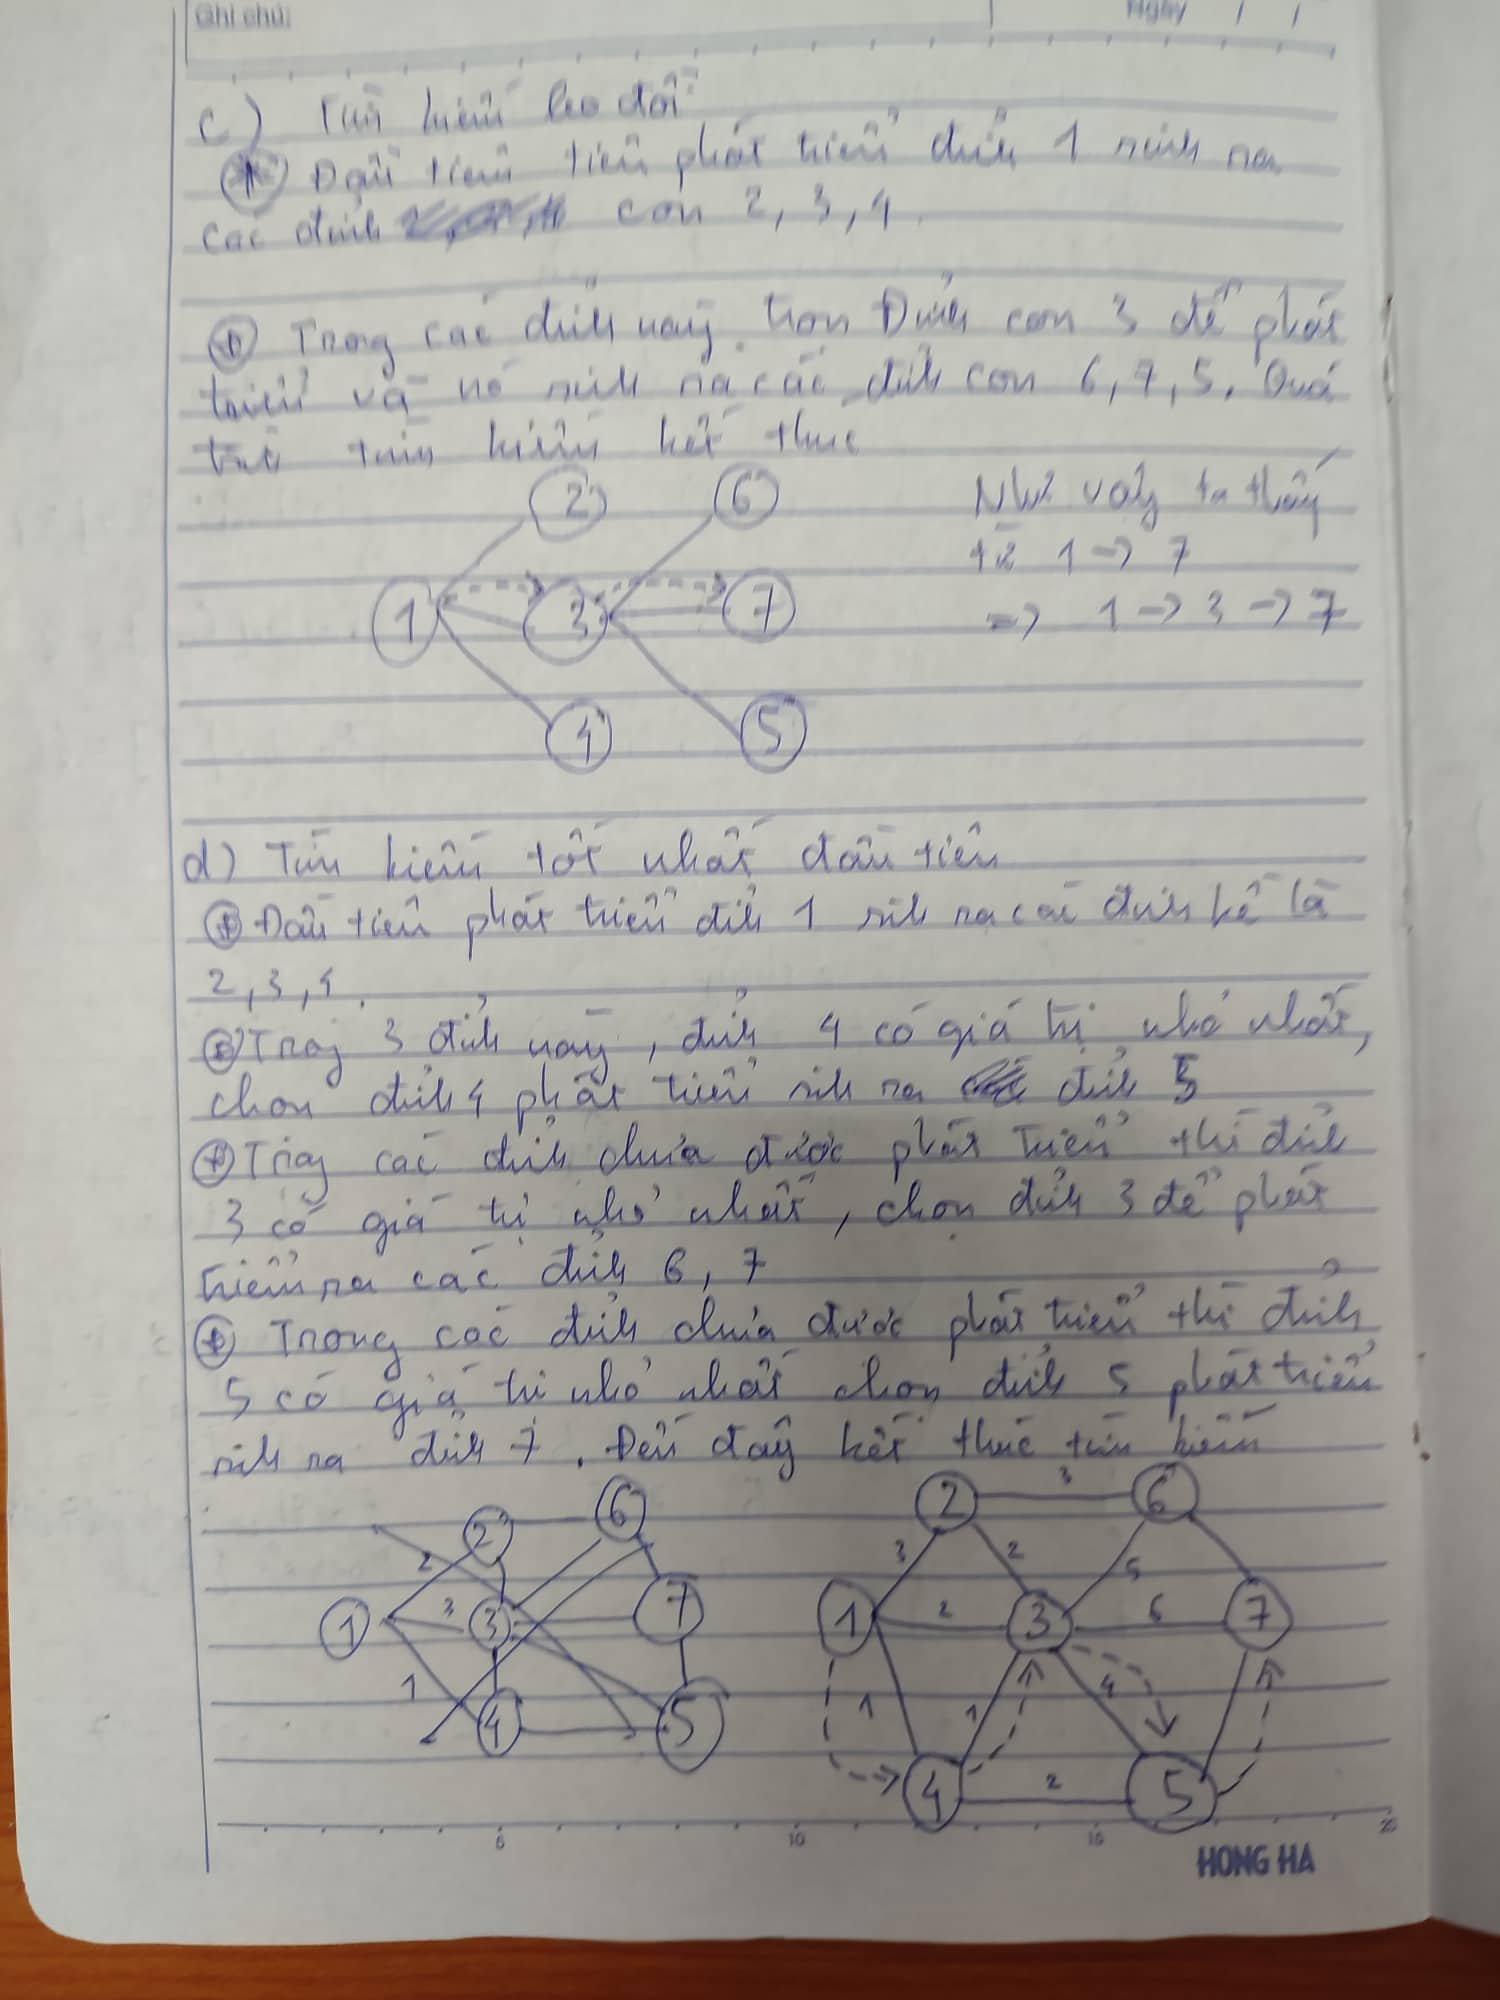 Ghi chú:
Ngày / /
c) Tìm kiếm leo đồi
Đầu tiên tiên phát triển đỉnh 1 sinh ra
các đỉnh con 2, 3, 4.
Trong các đỉnh này, chọn Đỉnh con 3 để phát
triển và nó sinh ra các đỉnh con 6, 7, 5. Quá
trình tìm kiếm kết thúc
2 6
Như vậy ta thấy
từ 1 -> 7
1 3 7
=> 1 -> 3 -> 7
4 5
d) Tìm kiếm tốt nhất đầu tiên
Đầu tiên phát triển đỉnh 1 sinh ra các đỉnh kề là
2, 3, 4.
Trong 3 đỉnh này, đỉnh 4 có giá trị nhỏ nhất,
chọn đỉnh 4 phát triển sinh ra đỉnh 5
Trong các đỉnh chưa được phát triển thì đỉnh
3 có giá trị nhỏ nhất, chọn đỉnh 3 để phát
triển ra các đỉnh 6, 7
Trong các đỉnh chưa được phát triển thì đỉnh
5 có giá trị nhỏ nhất chọn đỉnh 5 phát triển
sinh ra đỉnh 7. Đến đây kết thúc tìm kiếm
2 6
2
1 3 3 7
1
4 5
2 3 6
3 2 5
1 2 3 6 7
1 1 4
4 2 5
5 10 15 20
HONG HA